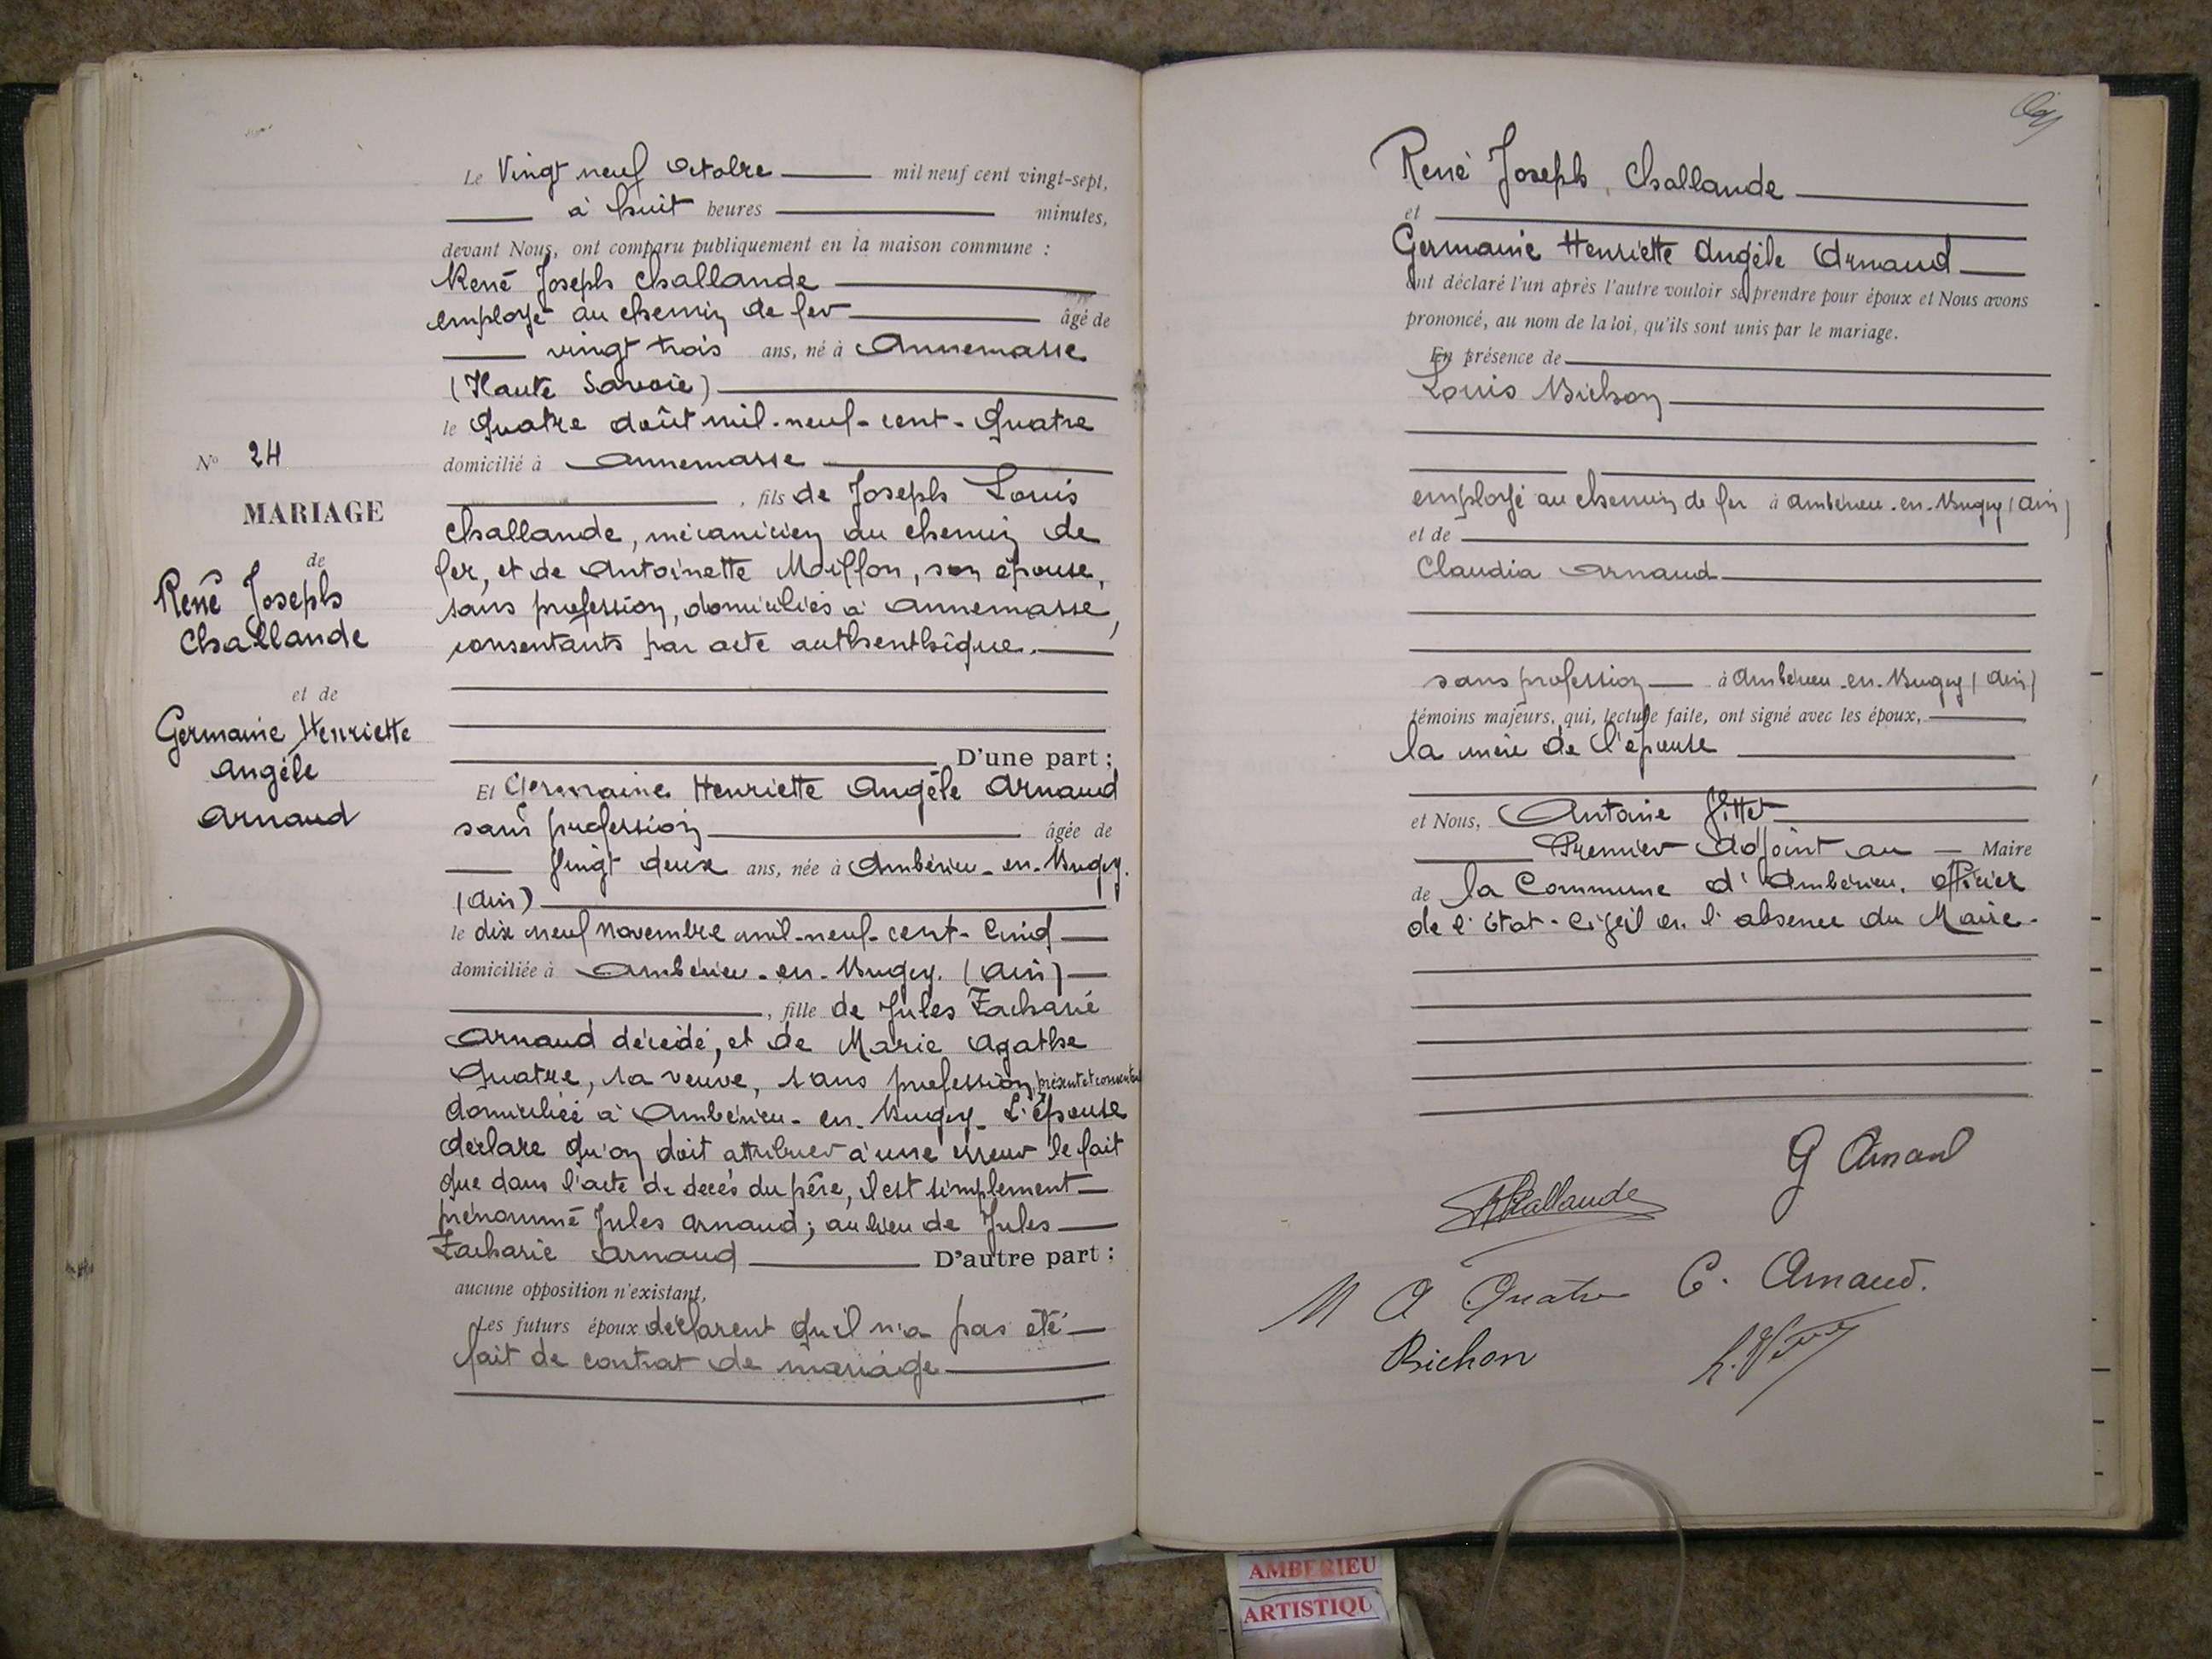 Le Vingt neuf Octobre mil neuf cent vingt-sept,
à huit heures minutes,
devant Nous, ont comparu publiquement en la maison commune :
René Joseph Challande
employé au chemin de fer âgé de
vingt trois ans, né à Annemasse
(Haute Savoie)
le Quatre août mil-neuf-cent-Quatre
domicilié à Annemasse
, fils de Joseph Louis
Challande, mécanicien au chemin de
fer, et de Antoinette son épouse,
sans profession, domiciliés à Annemasse,
consentants par acte authenthique.
D'une part ;
Et Germaine Henriette Angèle Arnaud
sans profession âgée de
Vingt deux ans, née à Ambérieu-en-Bugey.
(Ain)
le dix neuf Novembre mil-neuf-cent-Cinq
domiciliée à Ambérieu-en-Bugey. (Ain)
, fille de Jules Zacharie
Arnaud décédé, et de Marie Agathe
Quatre, sa veuve, sans profession, présente et
domiciliée à Ambérieu-en-Bugey. L'épouse
déclare qu'on doit attribuer à une erreur le fait
que dans l'acte de décès du père, il est simplement
prénommé Jules Arnaud; au lieu de Jules
Zacharie Arnaud D'autre part :
aucune opposition n'existant,
Les futurs époux déclarent qu'il n'a pas été
fait de contrat de mariage
No 24
MARIAGE
de
René Joseph
Challande
et de
Germaine Henriette
Angèle
Arnaud
René Joseph, Challande
et
Germaine Henriette Angèle Arnaud
ont déclaré l'un après l'autre vouloir se prendre pour époux et Nous avons
prononcé, au nom de la loi, qu'ils sont unis par le mariage.
En présence de
Louis Bichon
employé au chemin de fer à Ambérieu-en-Bugey (Ain)
et de
Claudia Arnaud
sans profession à Ambérieu-en-Bugey (Ain)
témoins majeurs, qui, lecture faite, ont signé avec les époux,
la mère de l'épouse
et Nous, Antoine
Premier Adjoint au Maire
de la Commune d'Ambérieu. Officier
de l'Etat-Civil en l'absence du Maire.
G Arnaud
RChallande
M A Quatre C. Arnaud.
Bichon
AMBERIEU
ARTISTIQU